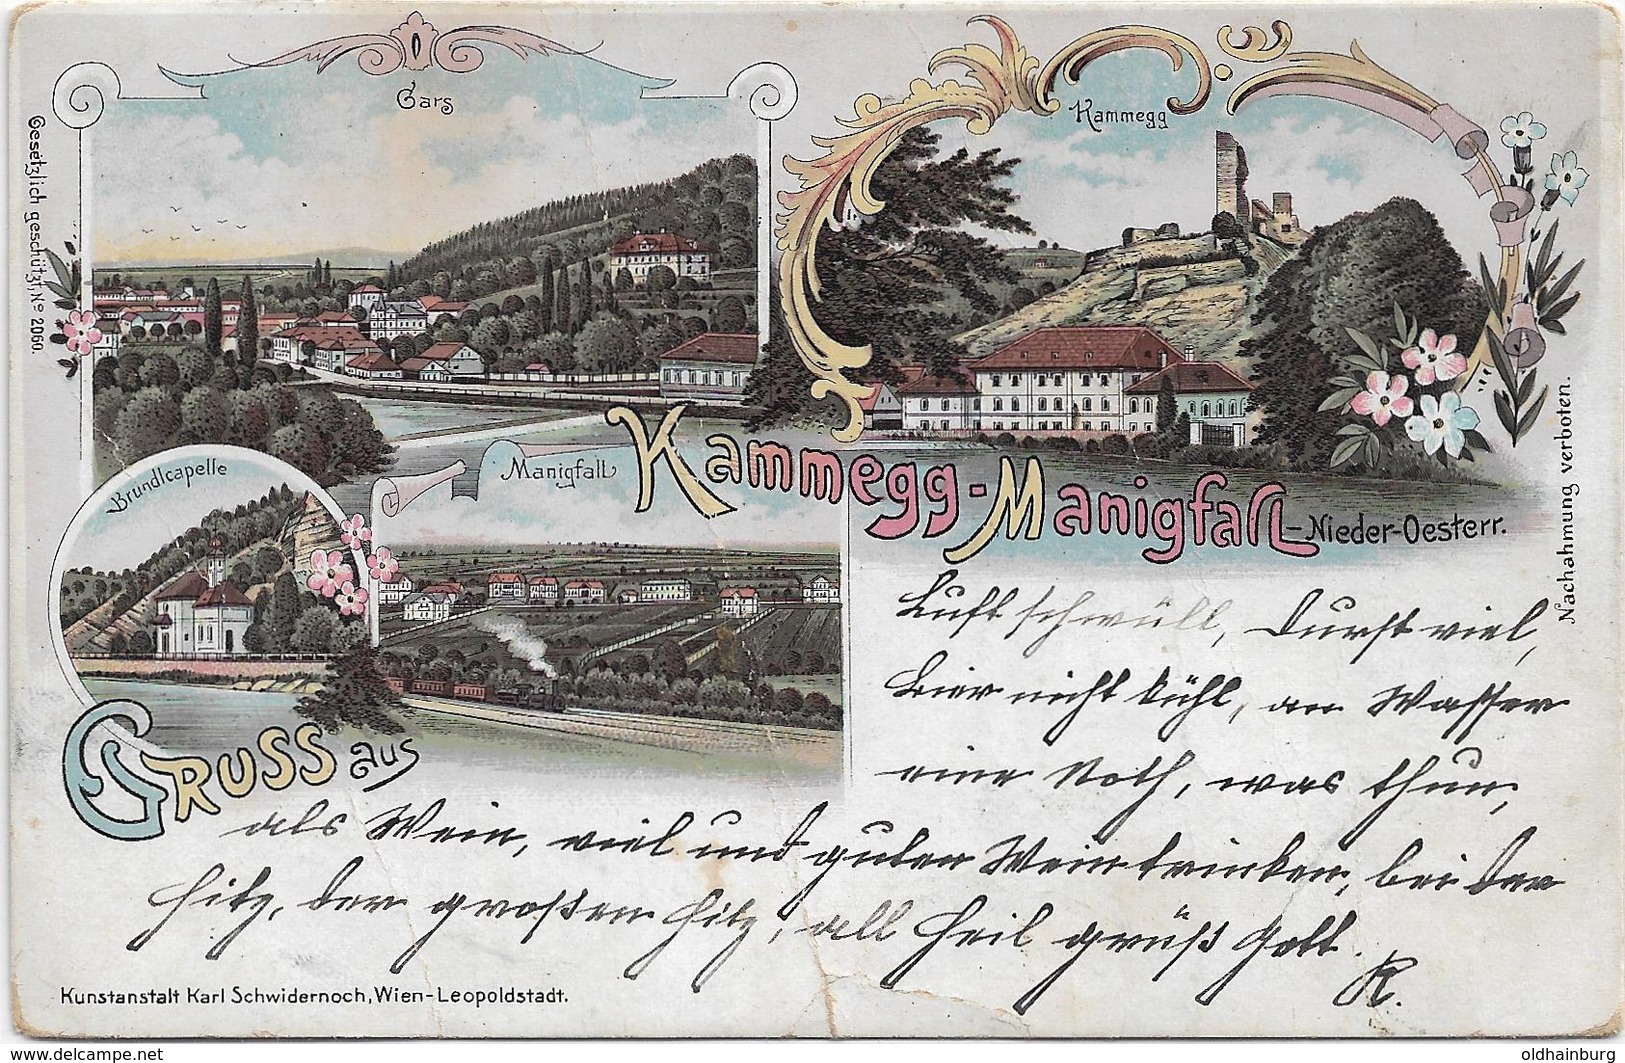 Gars
Kammegg
Gesetzlich geschützt, No 2060.
Bründlcapelle
Manigfall
Kammegg-Manigfall-Nieder-Oesterr.
Nachahmung verboten.
Gruss aus
Luft schwüll, Durst viel,
Bier nicht kühl, an Wasser
eine Noth, was thun,
als Wein, viel und guten Wein trinken, bei der
Hitz, der großen Hitz, all Heil grüß Gott.
R.
Kunstanstalt Karl Schwidernoch, Wien-Leopoldstadt.
www.delcampe.net
oldhainburg